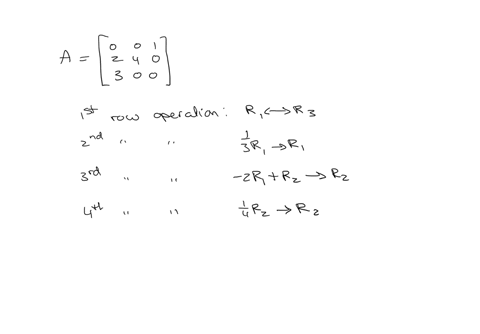 A = [ 0 0 1
2 4 0
3 0 0 ]
1st row operation: R₁ ↔ R₃
2nd " " 1/3 R₁ → R₁
3rd " " -2R₁ + R₂ → R₂
4th " " 1/4 R₂ → R₂